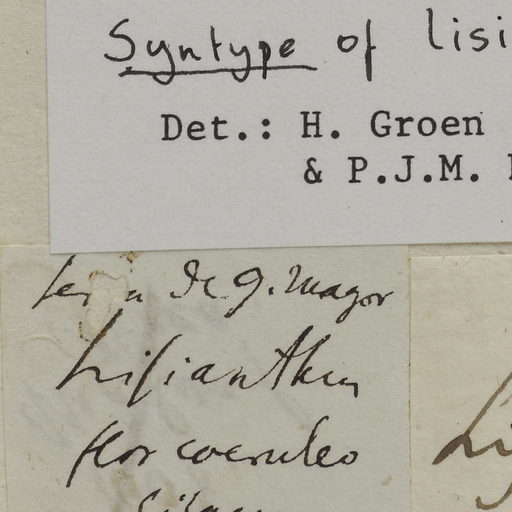 Syntype of lisi
Det.: H. Groen
& P.J.M.
de J. Mayor
Lisianthus
flor coeruleo
Li